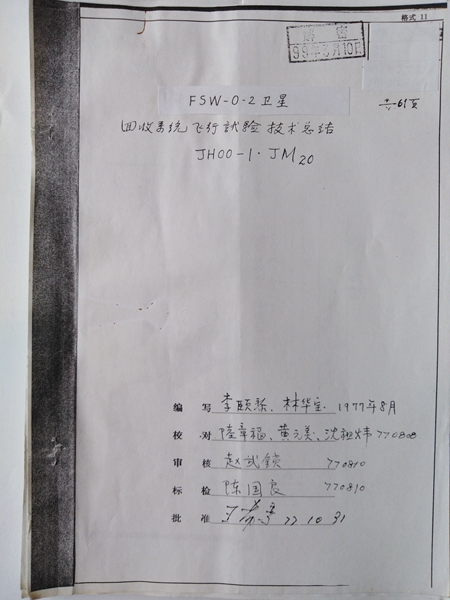 格式 11
99年3月10日
FSW-0-2卫星
共61页
回收系统飞行试验技术总结
JH00-1·JM20
编 写 李颐黎、林华宝 1977年8月
校 对 陆章福、黄元美、沈祖炜 770808
审 核 赵武锁 770810
标 检 陈国良 770810
批 准 77.10.31